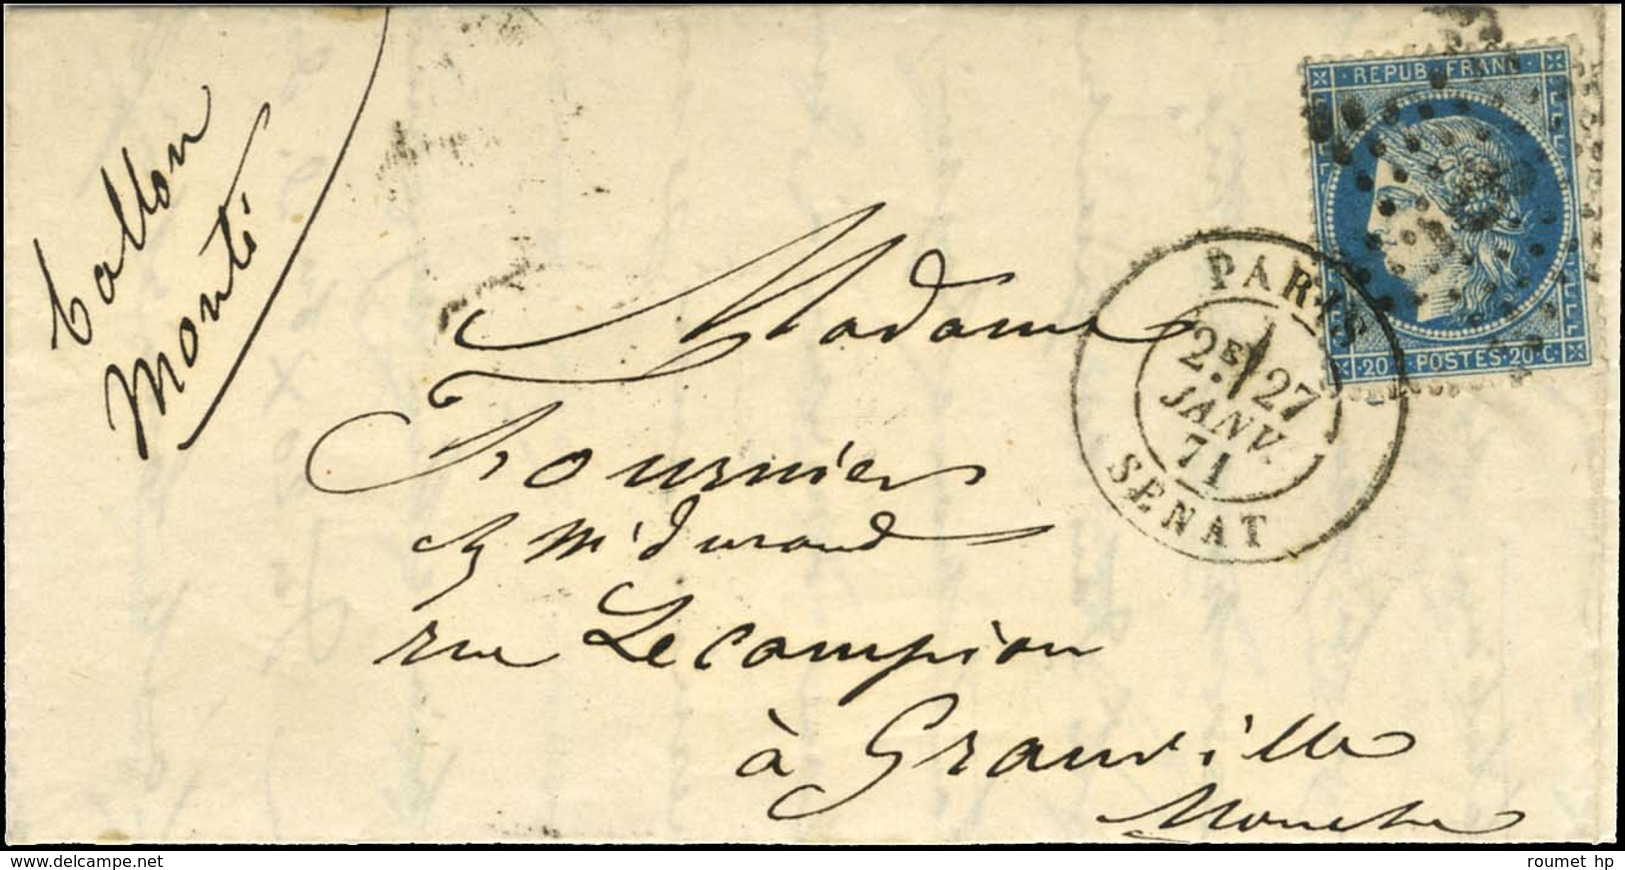 ballon
monté
REPUB. FRANC.
20 · POSTES · 20 · C
PARIS
2E 27
JANV.
71
SENAT
Madame
Fournier
Mr durand
rue Lecampion
à Granville
Manche
www.delcampe.net
roumet hp